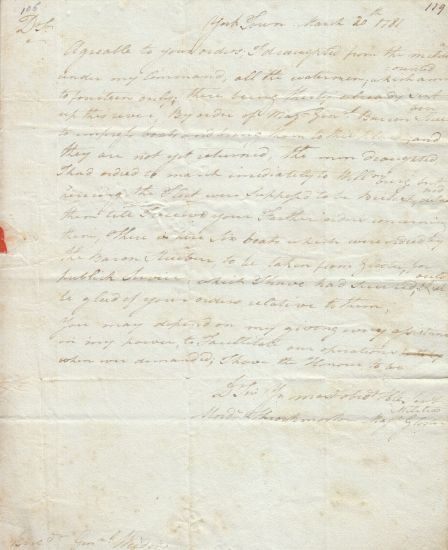 106
119
York Town March 20th 1781
Dr Sir
Agreable to your orders, I draughted from the militia
under my Command, all the watermen, which amounted
to fourteen only, there being thirty already sent
up this river, By order of Majr Genl Baron Steu
to impress boats and bring them to and
they are not yet returned, the men draughted
I had ordered to march imediately to but
hearing the Fleet was supposed to be
them till I receive your Farther orders concern
them, there is five six boats which were ordered by
the Baron Steuben to be taken from for
publick Service, which I have had secured, &
be glad of your orders relative to them,
You may depend on my giving every assistance
in my power, to facilitate our operations
when ever demanded; I have the Honour to be
Dr Sir Yr most obdt Hble Servt
Mordt Throckmorton Majr Militia
Genl